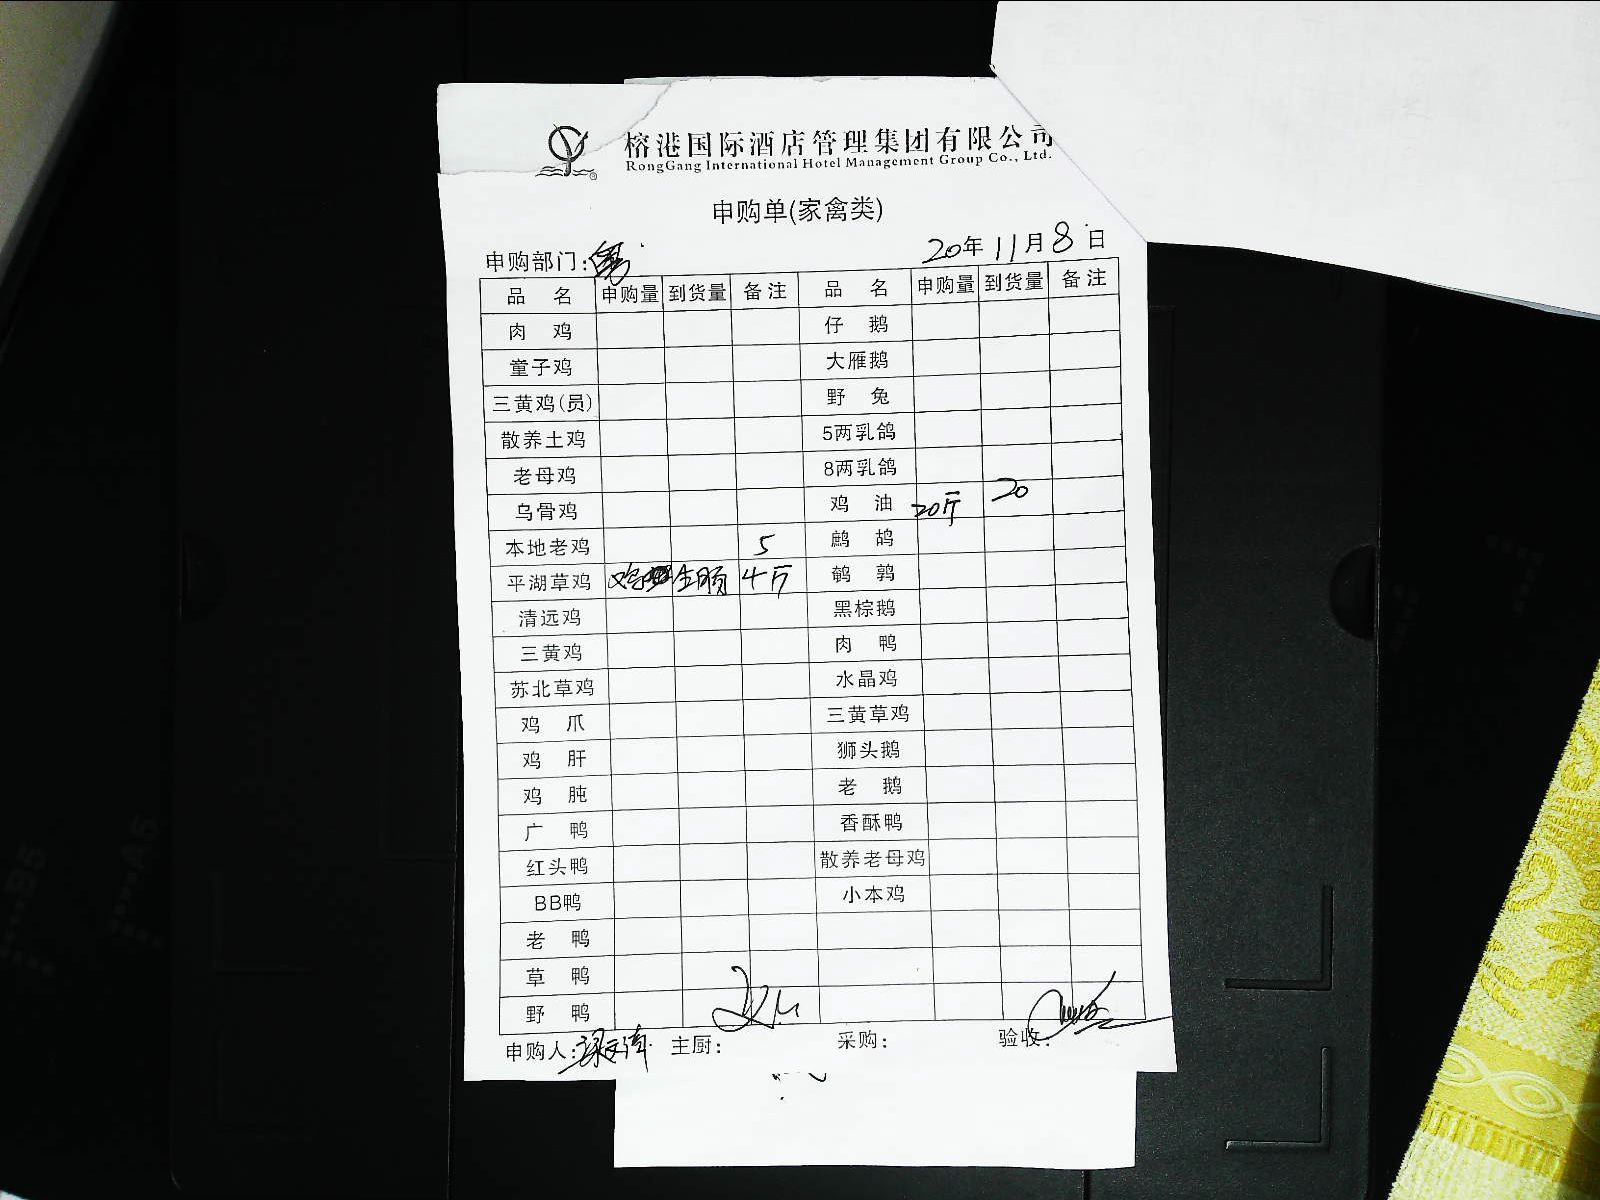 榕港国际酒店管理集团有限公司
RongGang International Hotel Management Group Co., Ltd.
申购单(家禽类)
申购部门:
20年11月8日
品名 申购量 到货量 备注 品名 申购量 到货量 备注
肉鸡 仔鹅
童子鸡 大雁鹅
三黄鸡(员) 野兔
散养土鸡 5两乳鸽
老母鸡 8两乳鸽
乌骨鸡 鸡油 20斤 20
本地老鸡 5 鹧鸪
平湖草鸡 鸡 生肠 4斤 鹌鹑
清远鸡 黑棕鹅
三黄鸡 肉鸭
苏北草鸡 水晶鸡
鸡爪 三黄草鸡
鸡肝 狮头鹅
鸡肫 老鹅
广鸭 香酥鸭
红头鸭 散养老母鸡
BB鸭 小本鸡
老鸭
草鸭
野鸭
申购人: 主厨: 采购: 验收:
B5
A6